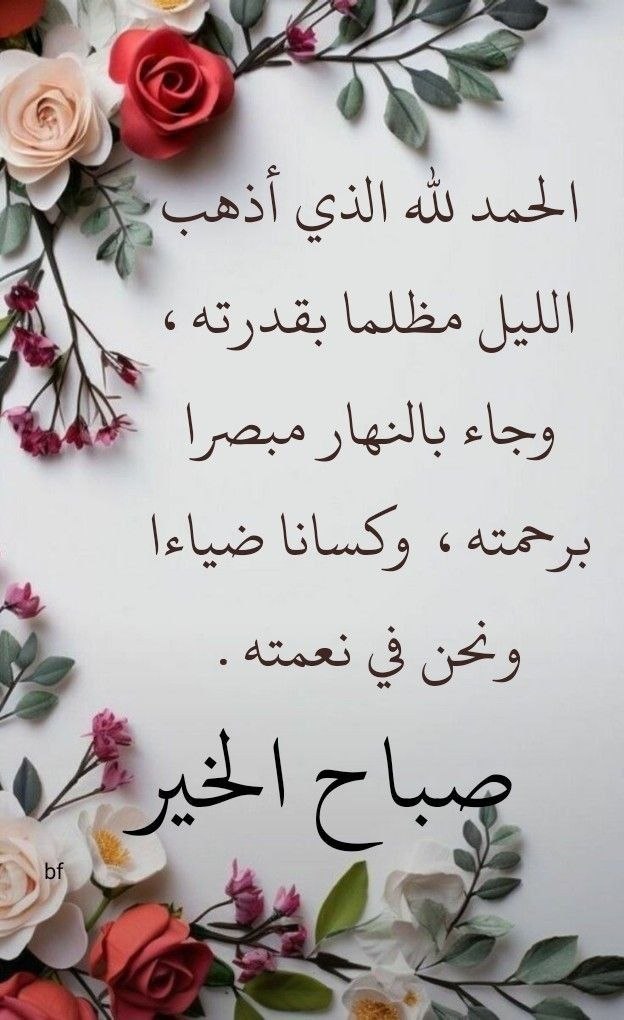 الحمد لله الذي أذهب
الليل مظلما بقدرته ،
وجاء بالنهار مبصرا
برحمته ، وكسانا ضياءا
ونحن في نعمته .
صباح الخير
bf